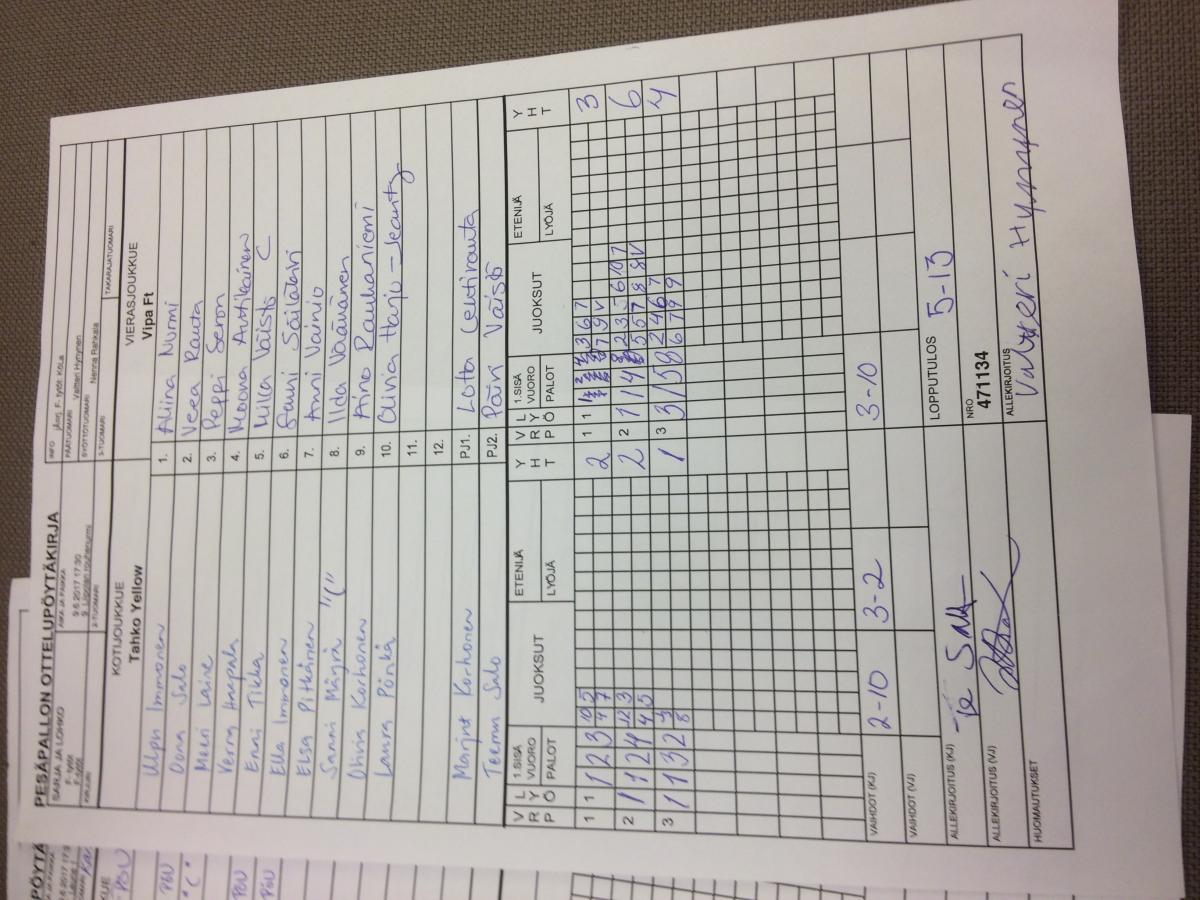 PESÄPALLON OTTELUPÖYTÄKIRJA
SARJA JA LOHKO
F-tytöt
F-tytöt
AIKA JA PAIKKA
9.6.2017 17:30
INFO
PÄÄTUOMARI Valtteri Hynynen
SYÖTTÖTUOMARI Nenna Rahkala
2-TUOMARI
3-TUOMARI
TAKARAJATUOMARI
KIRJURI
KOTIJOUKKUE
Tahko Yellow
VIERASJOUKKUE
Vipa Ft
Ulpu Immonen 1. Aliina Nurmi
Oona Salo 2. Veea Rauta
Meeri Laine 3. Peppi Seron
Verra Haapala 4. Noona Auttikainen
Enni Tikka 5. Milla Väistö C
Ella Immonen 6. Sanni Säiläkivi
Elsa Pitkänen 7. Anni Vainio
Sanni Mäyrä "C" 8. Ilda Väänänen
Olivia Korhonen 9. Aino Rauhaniemi
Laura Pönkä 10. Olivia Harju-Jeanty
11.
12.
Marjut Korhonen PJ1. Lotta Lentirauta
Teemu Salo PJ2. Päivi Väistö
V R P L Y Ö 1.SISÄ VUORO PALOT JUOKSUT ETENIJÄ LYÖJÄ Y H T
V R P L Y Ö 1.SISÄ VUORO PALOT JUOKSUT ETENIJÄ LYÖJÄ Y H T
1 1 1 2 3 10 5 4 7 2 1 1 3 6 7 7 9 V 3
2 1 1 2 4 12 3 4 5 2 2 1 1 4 2 3 5 6 10 7 5 5 7 8 8 V 6
3 1 1 3 2 3 8 1 3 3 1 5 8 2 4 6 7 6 7 9 9 4
VAIHDOT (KJ) 2-10 3-2 3-10
VAIHDOT (VJ)
ALLEKIRJOITUS (KJ)
LOPPUTULOS 5-13
ALLEKIRJOITUS (VJ)
NRO
471134
HUOMAUTUKSET
ALLEKIRJOITUS
Valtteri Hynynen